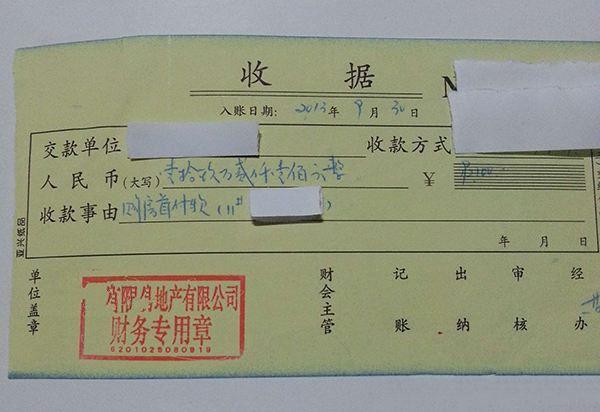 收 据 N
入账日期: 2013 年 9 月 30 日
交款单位 收款方式
人民币(大写) 壹拾玖万贰仟壹佰元整 ¥
收款事由 购房首付款 (11# )
年 月 日
亚兴纸品
单位盖章
财会主管
记 账
出 纳
审 核
经 办
地产有限公司
财务专用章
6201025080919